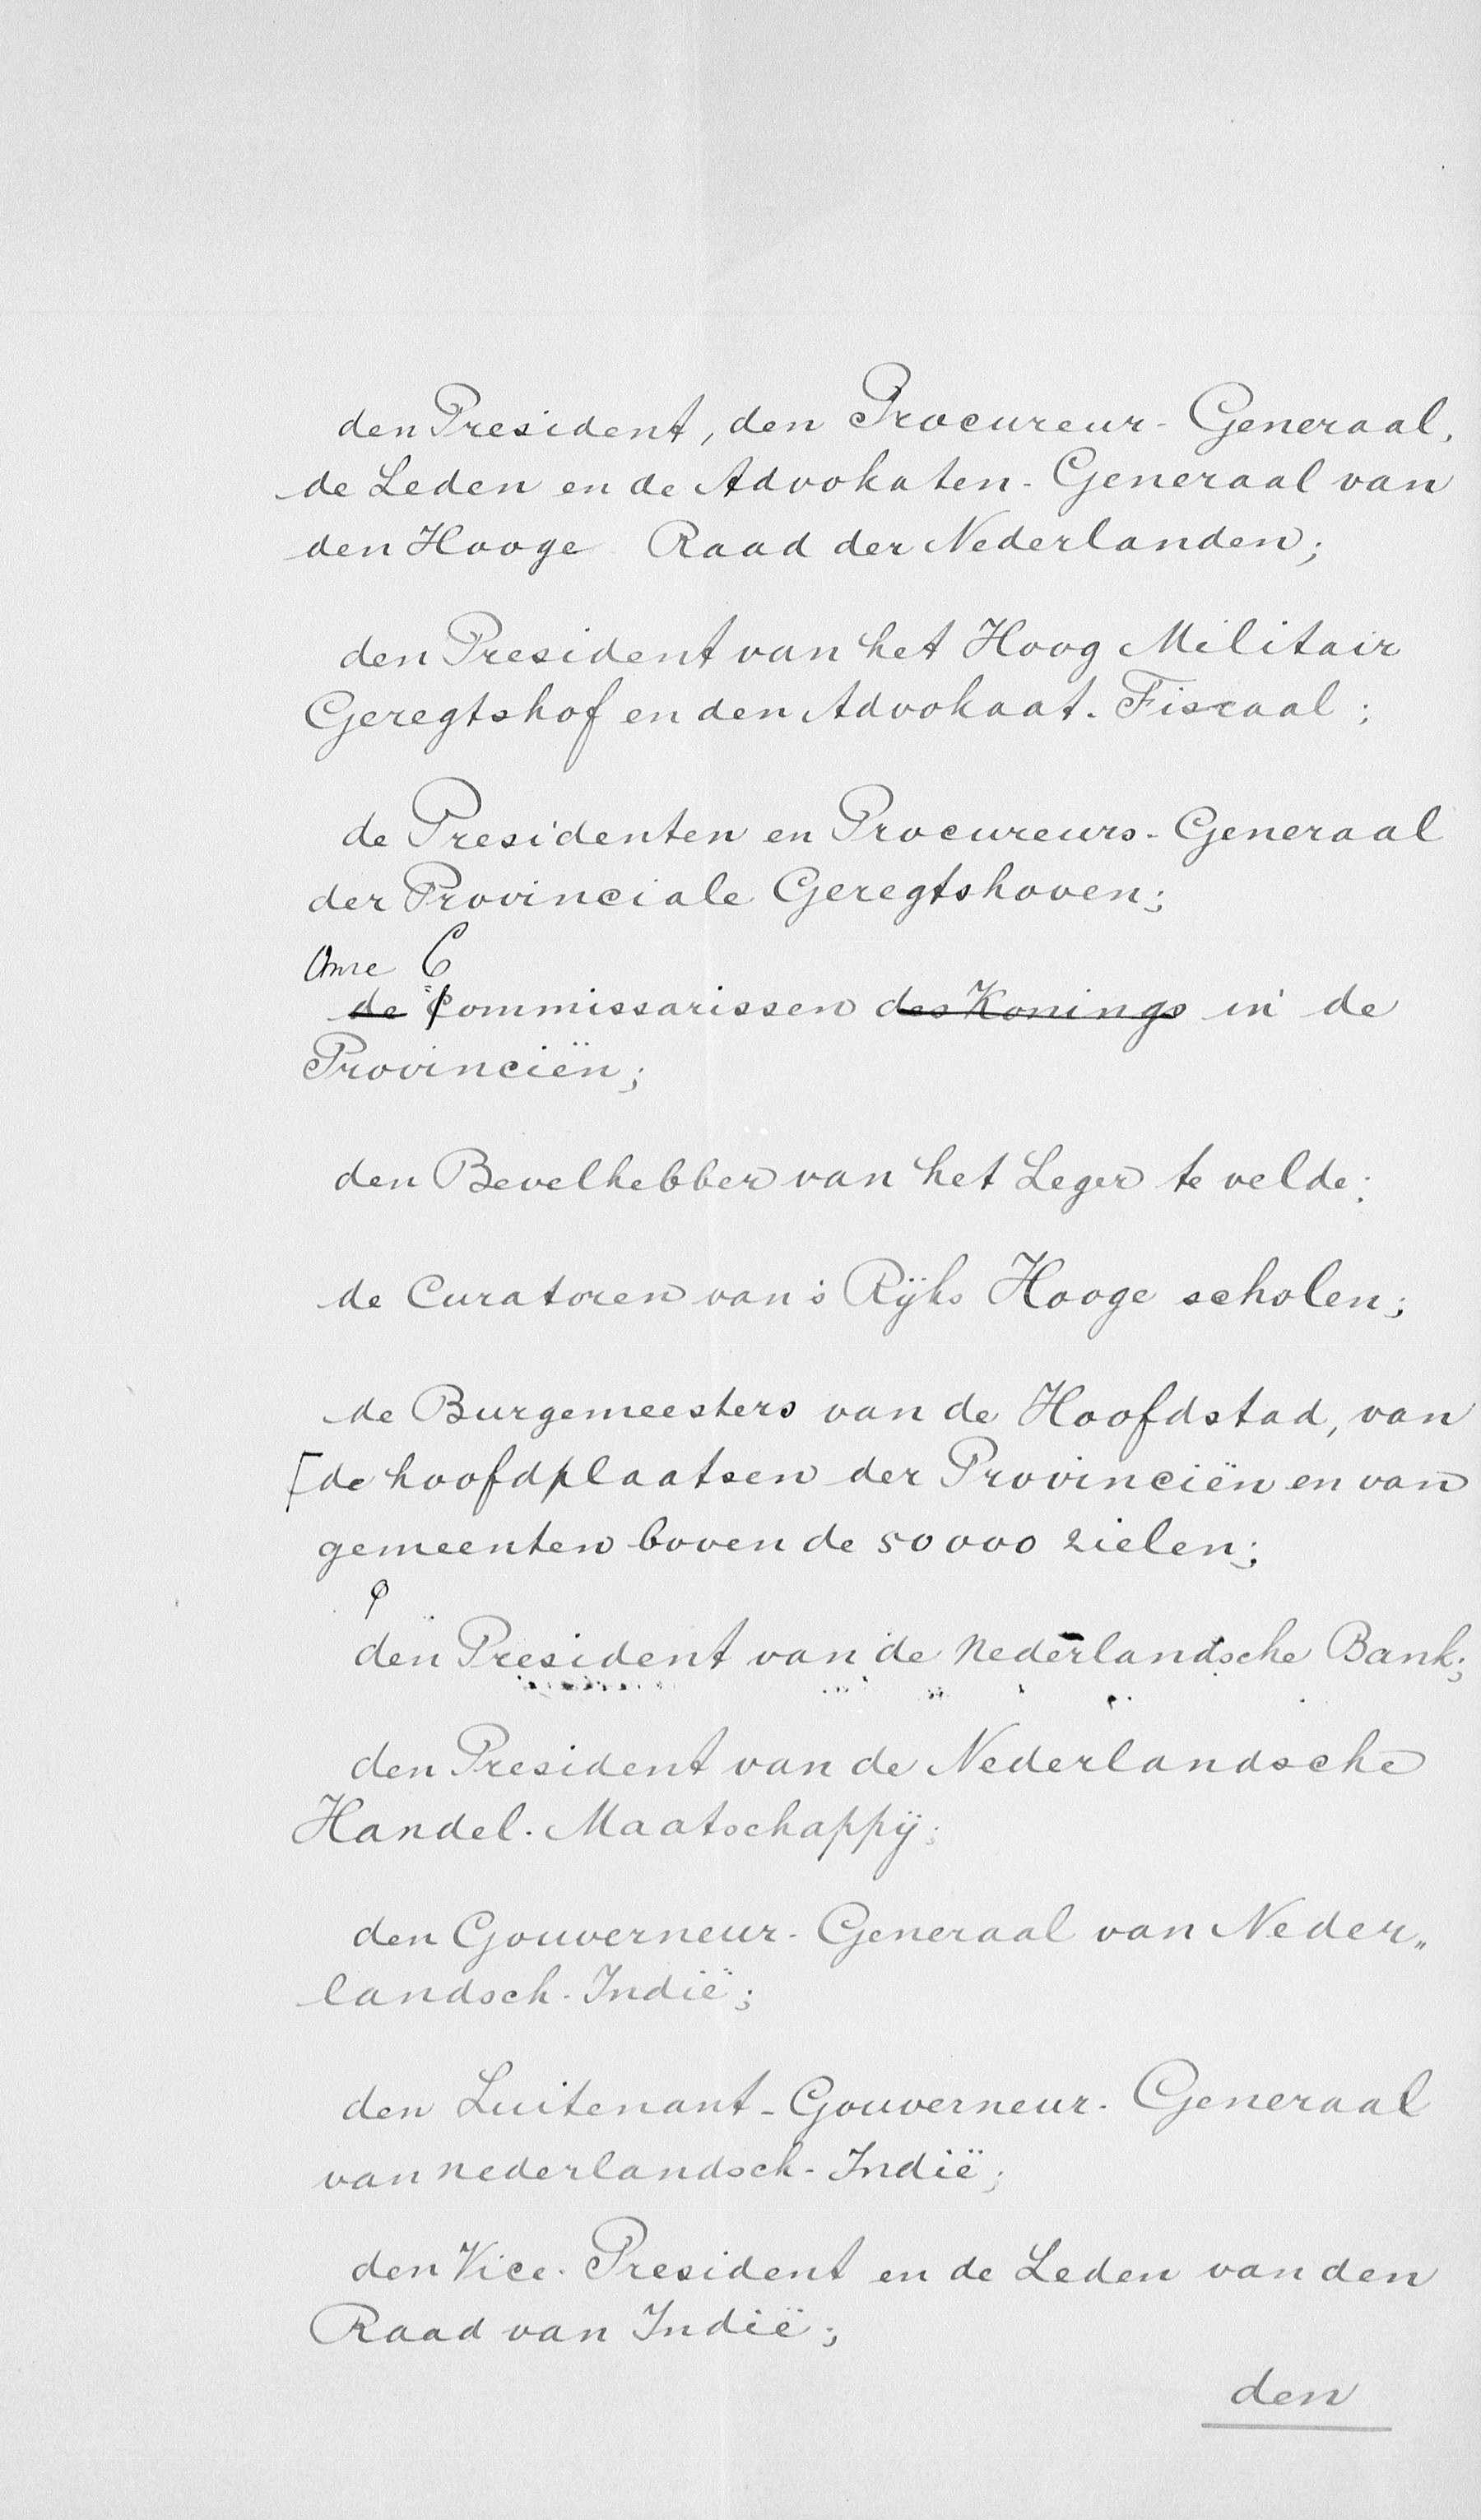 den President, den Procureur-Generaal,
de Leden en de Advokaten-Generaal van
den Hooge Raad der Nederlanden;
den President van het Hoog Militair
Geregtshof en den Advokaat-Fiscaal;
de Presidenten en Procureurs-Generaal
der Provinciale Geregtshoven;
Onze C
de Commissarissen des Konings in de
Provinciën;
den Bevelhebber van het Leger te velde;
de Curatoren van 's Rijks Hooge scholen;
de Burgemeesters van de Hoofdstad, van
[de hoofdplaatsen der Provinciën en van
gemeenten boven de 50000 zielen;
den President van de Nederlandsche Bank;
den President van de Nederlandsche
Handel-Maatschappij;
den Gouverneur-Generaal van Neder„
landsch-Indië;
den Luitenant-Gouverneur-Generaal
van Nederlandsch-Indië;
den Vice-President en de Leden van den
Raad van Indië;
den